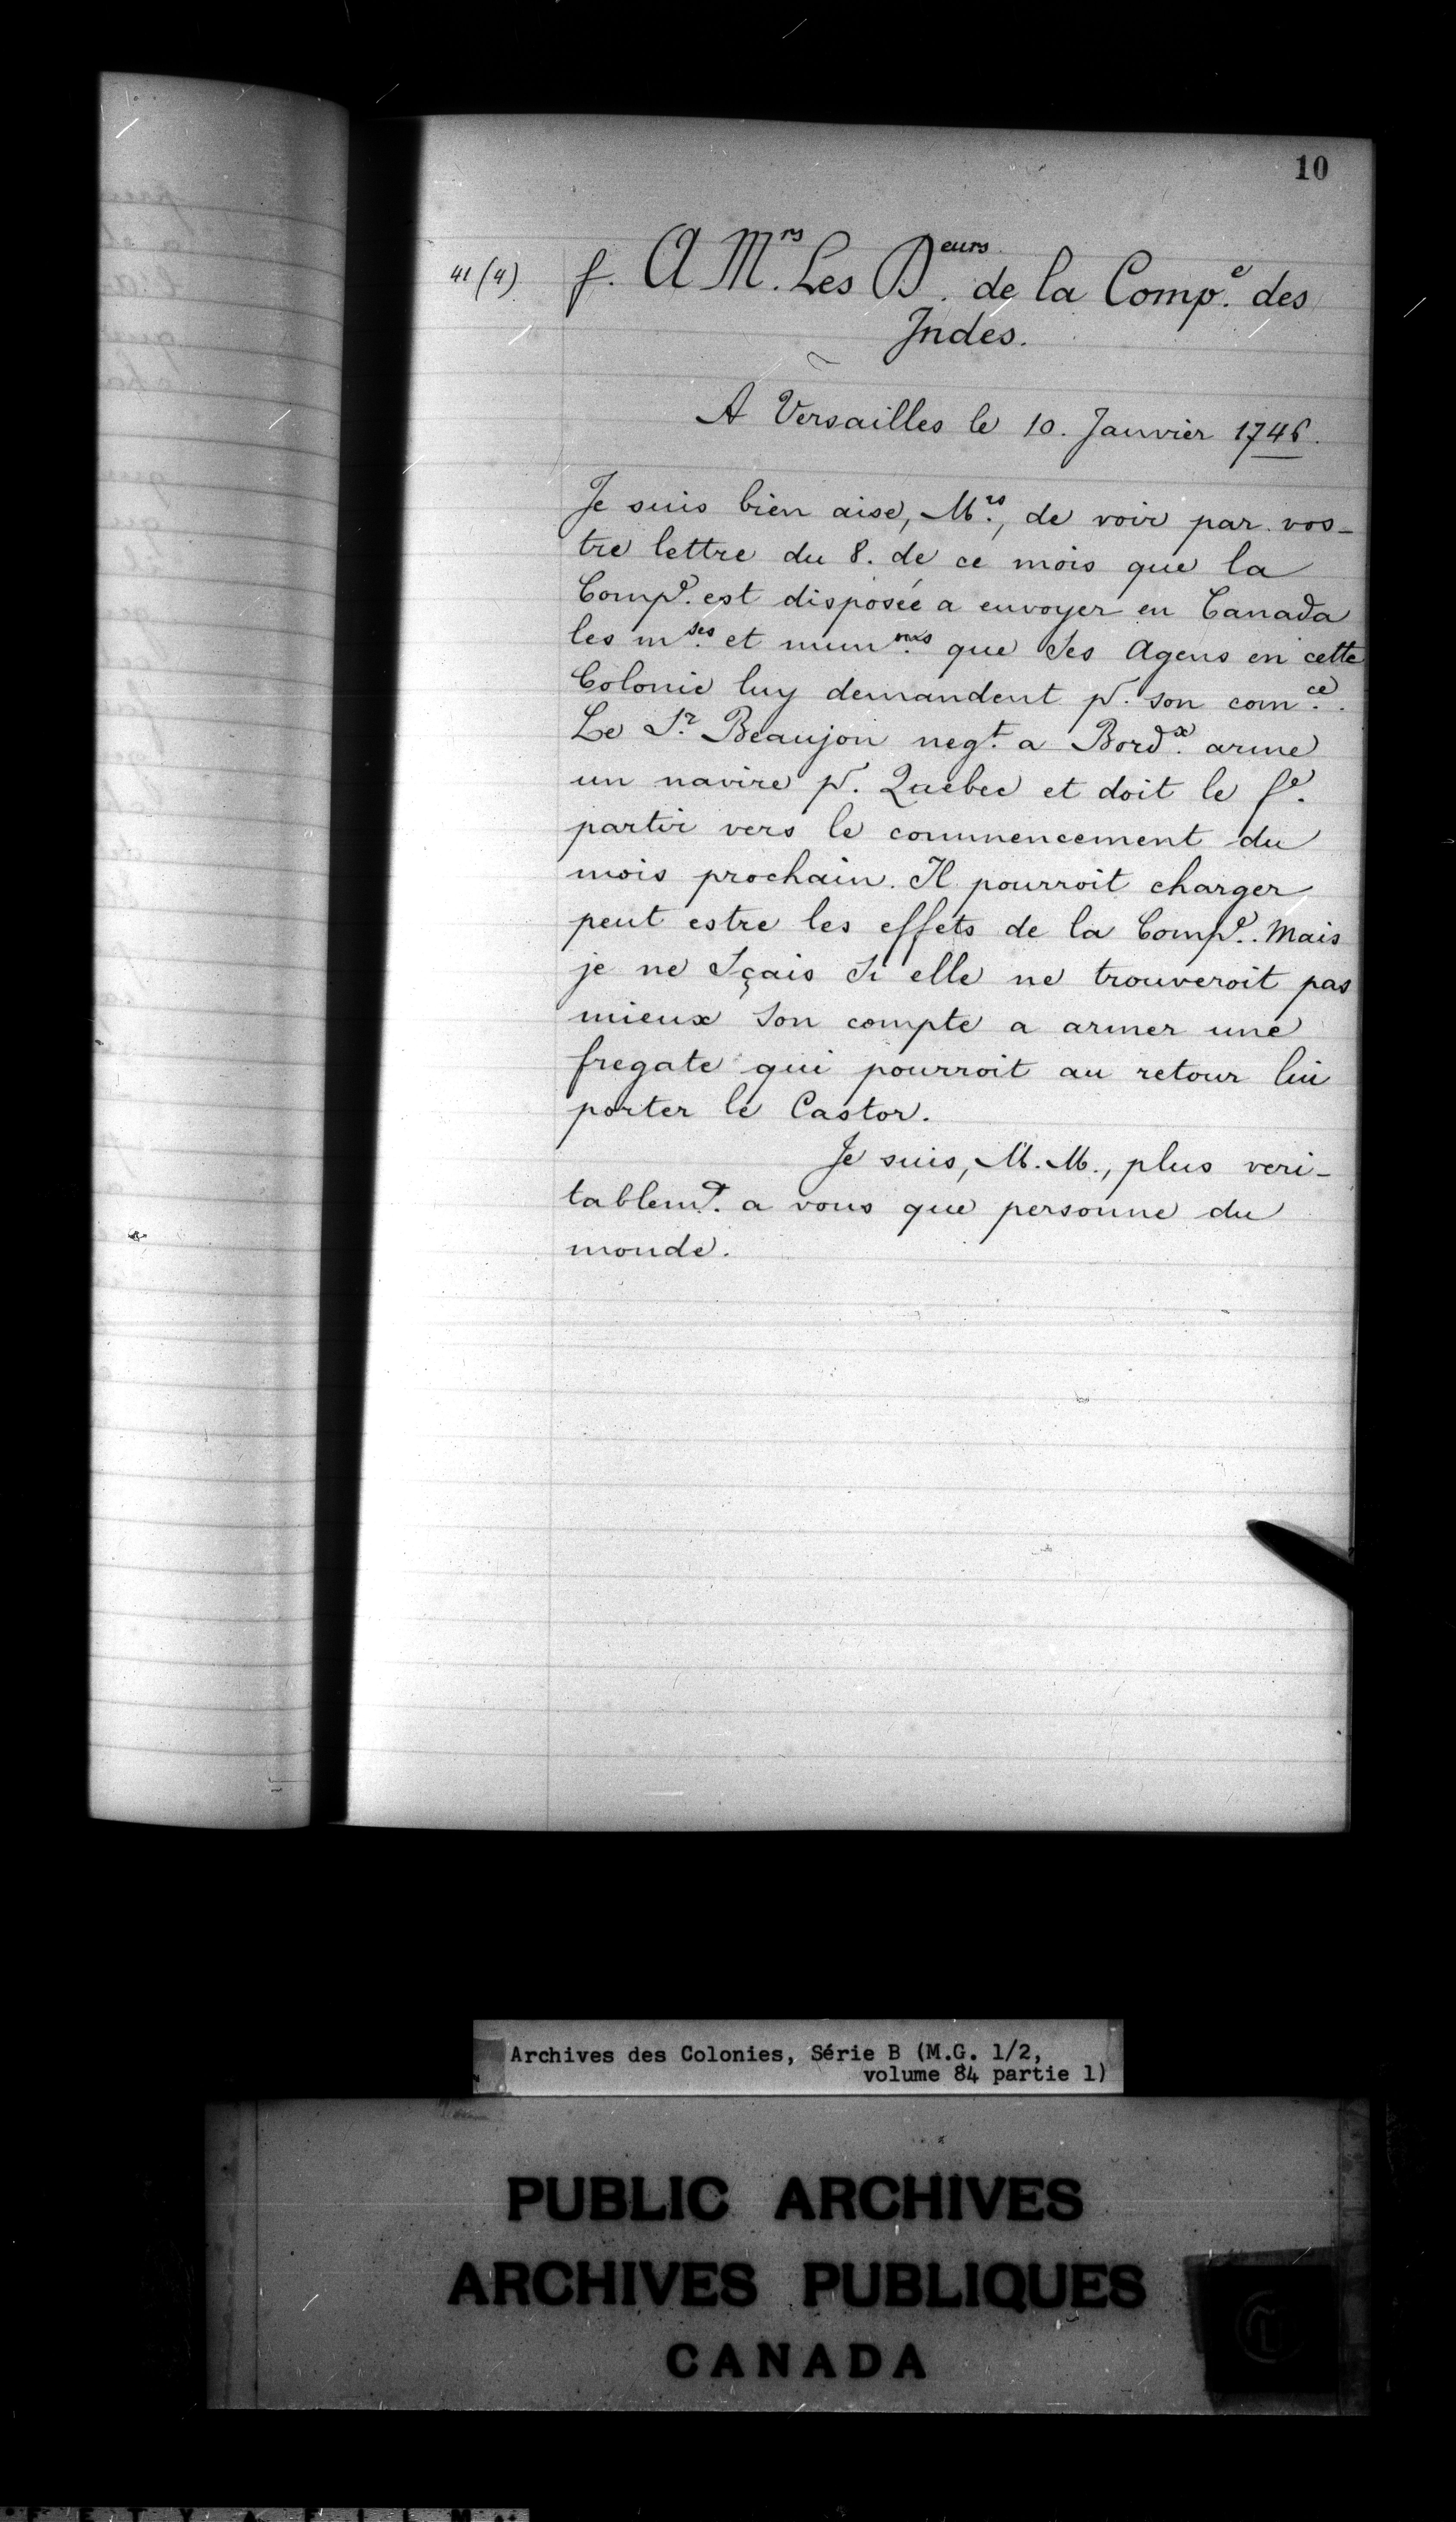 10
41 (4) f. A M.rs Les D.eurs de la Comp.e des
Indes.
A Versailles le 10. Janvier 1746.
Je suis bien aise, M.rs, de voir par vos-
tre lettre du 8. de ce mois que la
Comp.e est disposée a envoyer en Canada
les m.ses et mun.ons que Ses Agens en cette
Colonie luy demandent p.r son com.ce.
Le S.r Beaujon neg.t a Bord.x arme
un navire p.r Quebec et doit le f.e
partir vers le commencement du
mois prochain. Il pourroit charger
peut estre les effets de la Comp.e. Mais
je ne Sçais Si elle ne trouveroit pas
mieux Son compte a armer une
fregate qui pourroit au retour lui
porter le Castor.
Je suis, M.M., plus veri-
tablem.t a vous que personne du
monde.
Archives des Colonies, Série B (M.G. 1/2,
volume 84 partie 1)
PUBLIC ARCHIVES
ARCHIVES PUBLIQUES
CANADA